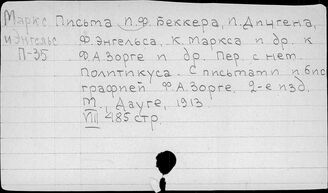 Маркс Письма И.Ф. Беккера, И. Дицгена,
и Энгельс Ф. Энгельса, К. Маркса и др. к
П-35 Ф.А. Зорге и др. Пер. с нем.
Политикуса. С письмами и био
графией Ф.А. Зорге. 2-е изд.
М., Дауге, 1913
VIII 485 стр.